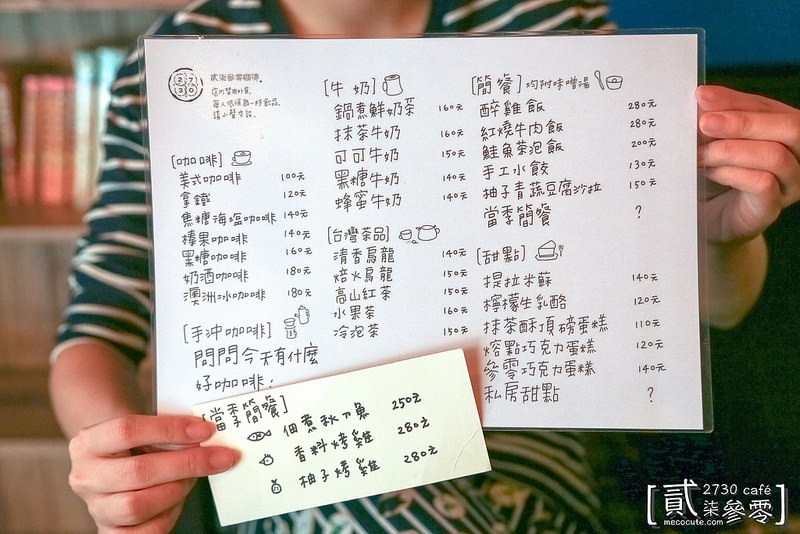 27
30
貳柒參零咖啡。
[咖啡]
美式咖啡 100元
拿鐵 120元
焦糖海塩咖啡 140元
榛果咖啡 140元
黑糖咖啡 160元
奶酒咖啡 180元
澳洲冰咖啡 180元
[手沖咖啡]
問問今天有什麼
好咖啡!
[牛奶]
鍋煮鮮奶茶 160元
抹茶牛奶 160元
可可牛奶 150元
黑糖牛奶 140元
蜂蜜牛奶 140元
[台灣茶品]
清香烏龍 140元
焙火烏龍 150元
高山紅茶 150元
水果茶 160元
冷泡茶 150元
[簡餐] 均附味噌湯
醉雞飯 280元
紅燒牛肉飯 280元
鮭魚茶泡飯 200元
手工水餃 130元
柚子青蔬豆腐沙拉 150元
當季簡餐 ?
[甜點]
提拉米蘇 140元
檸檬生乳酪 120元
抹茶酥頂磅蛋糕 110元
熔點巧克力蛋糕 120元
參零巧克力蛋糕 140元
私房甜點 ?
[當季簡餐]
佃煮秋刀魚 250元
香料烤雞 280元
柚子烤雞 280元
[貳柒參零]
2730 café
mecocute.com